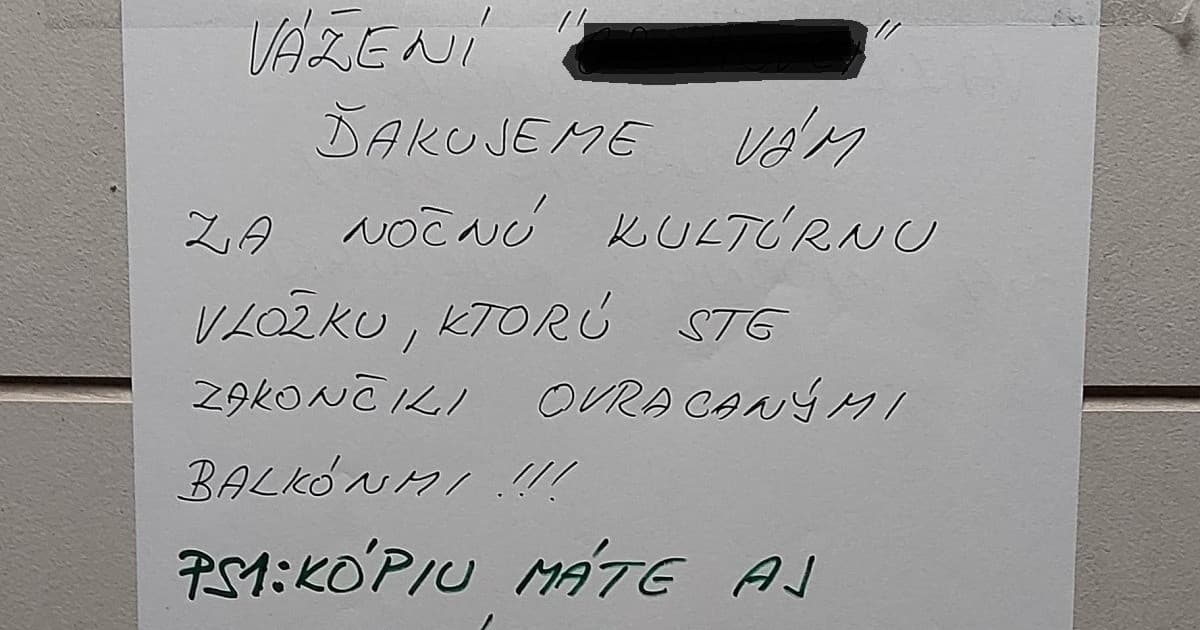 VÁŽENÍ " "
ĎAKUJEME VÁM
ZA NOČNÚ KULTÚRNU
VLOŽKU, KTORÚ STE
ZAKONČILI OVRACANÝMI
BALKÓNMI !!!
PS1: KÓPIU MÁTE AJ